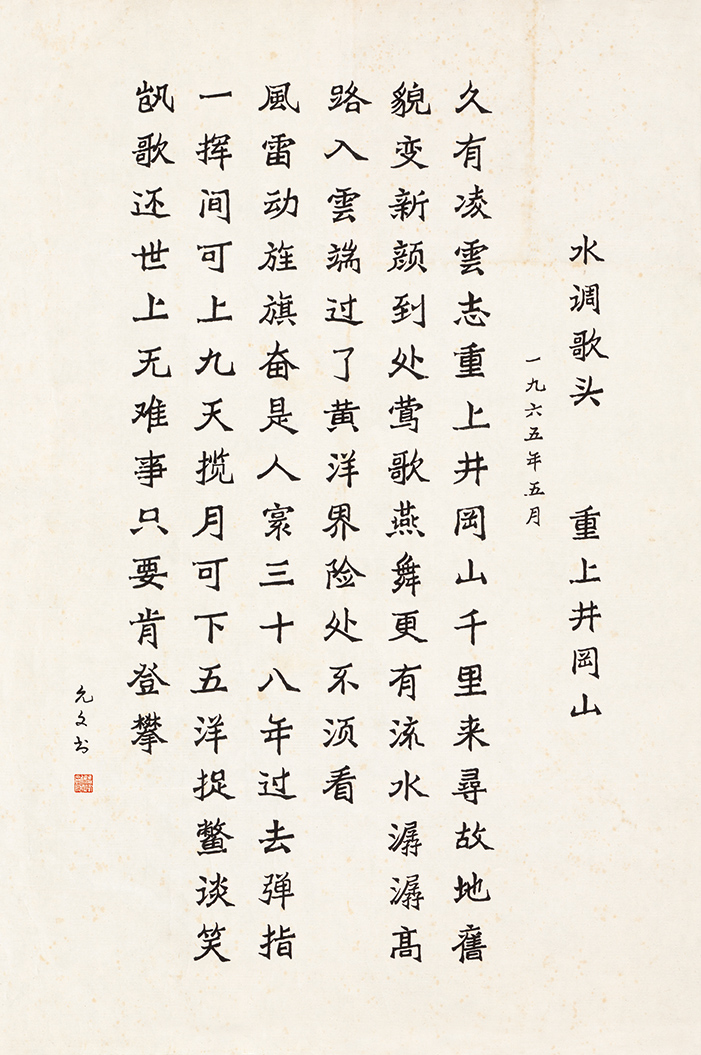 水调歌头　重上井冈山
一九六五年五月
久有凌雲志重上井岡山千里来尋故地舊
貌变新颜到处莺歌燕舞更有流水潺潺髙
路入雲端过了黄洋界险处不须看
風雷动旌旗奋是人寰三十八年过去弹指
一挥间可上九天揽月可下五洋捉鳖谈笑
凯歌还世上无难事只要肯登攀
允文书